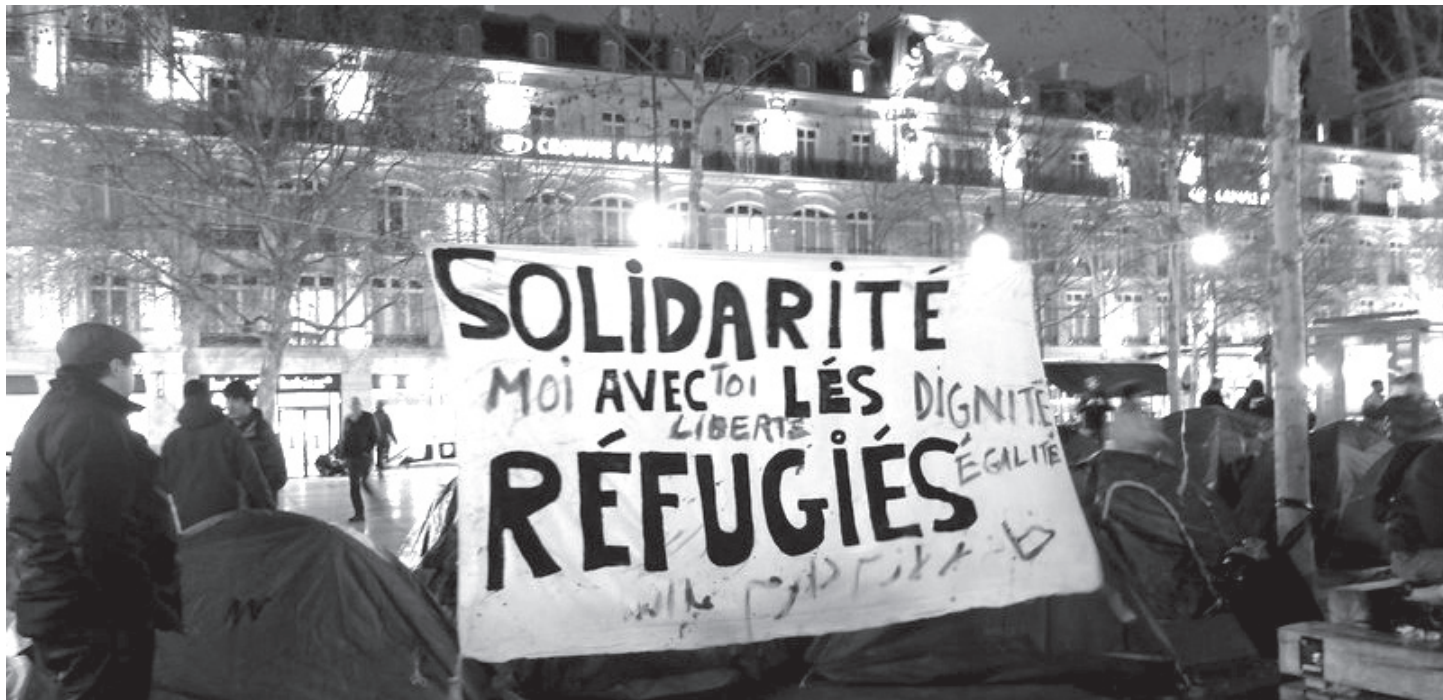 CROWNE PLAZA
SOLiDARiTÉ
MOi AVEC TOi LÉS DIGNITÉ
LIBERTÉ
ÉGALITÉ
RÉFUGiÉS